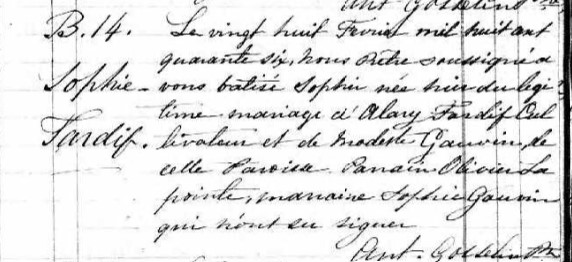 Ant Gosselin
B. 14.
Sophie
Tardif.
Le vingt huit Fevrier mil huit cent
quarante six, Nous Prêtre soussigné a
vons batisé Sophie née hier du légi
time mariage d'Alary Tardif Cul
tivateur et de Modeste Gauvin, de
cette Paroisse Parrain Olivier La
pointe, maraine Sophie Gauvin
qui n'ont su signer
Ant. Gosselin Ptre